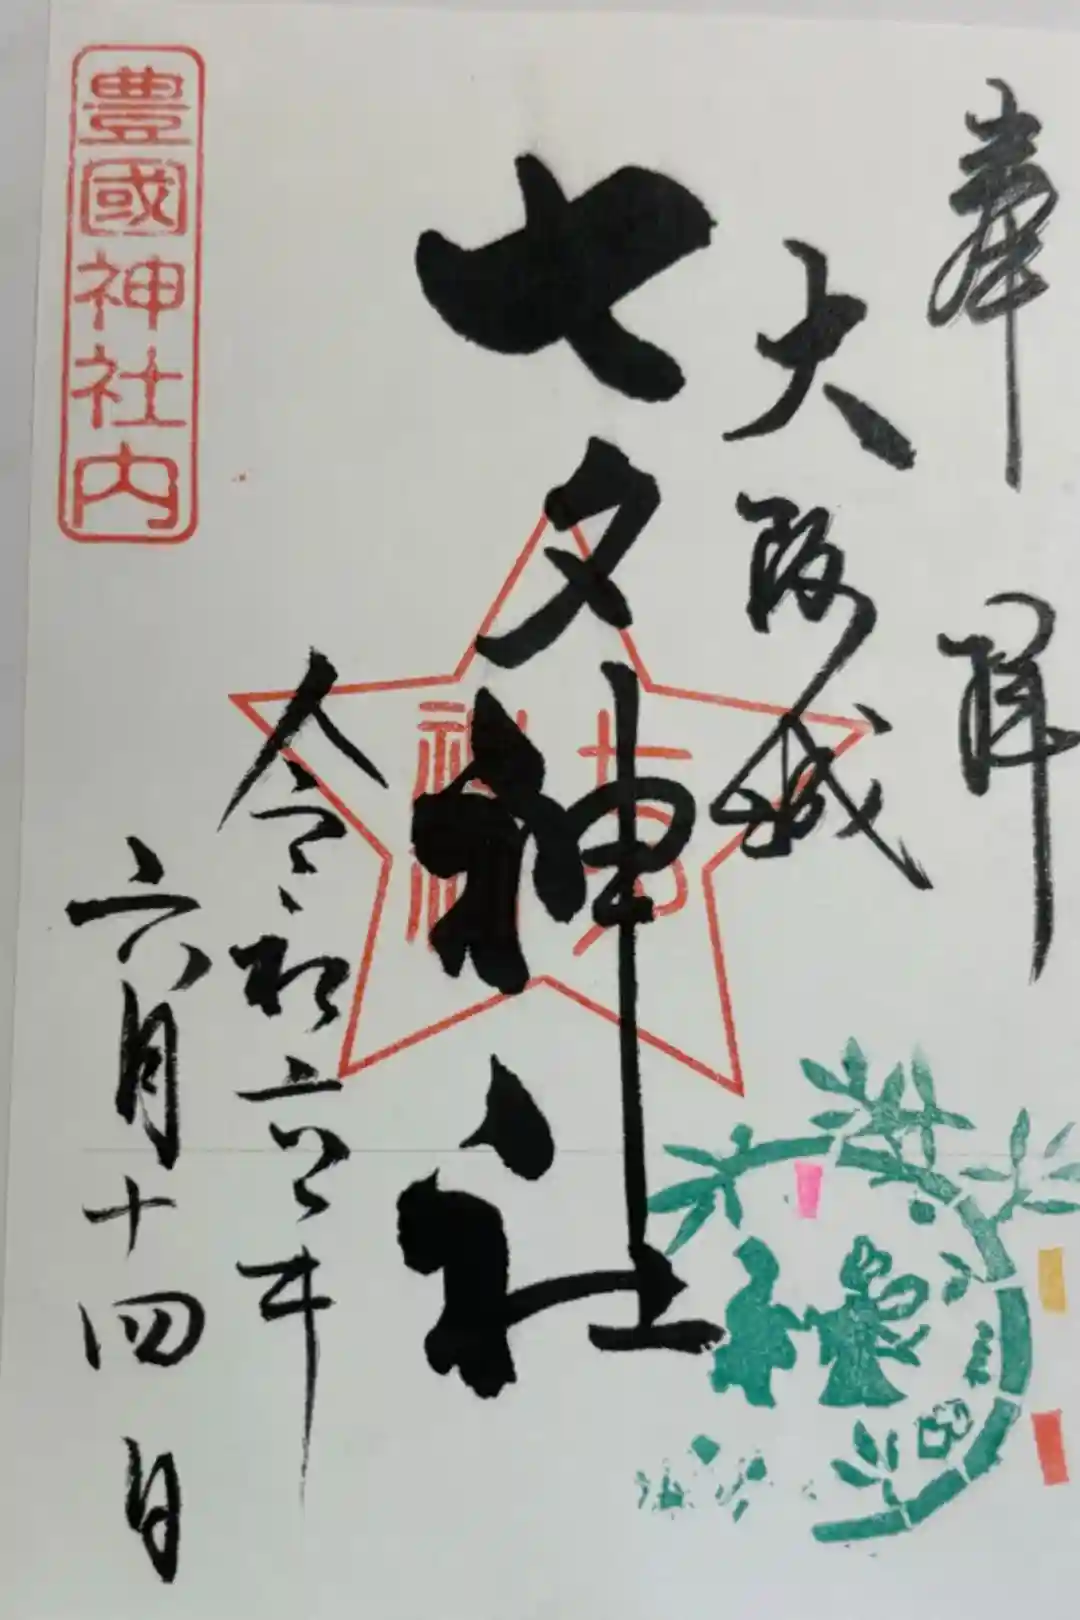 奉拝
大阪城
七夕神社
七夕
令和六年
六月十四日
豊國神社内